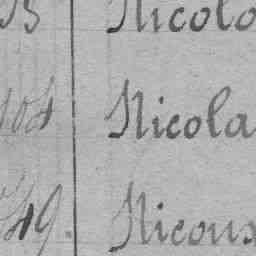 Nicolo
104 Nicola
49. Nicoux